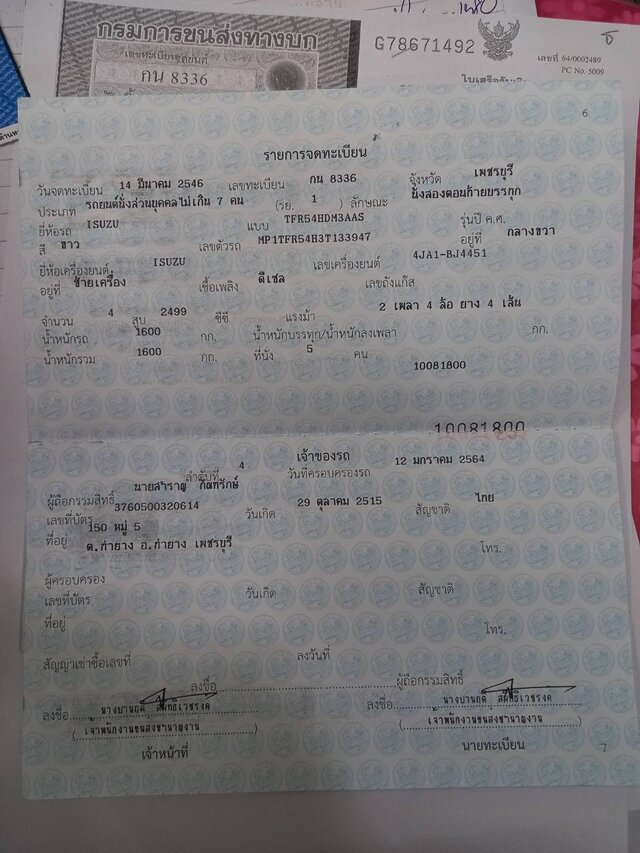 กรมการขนส่งทางบก
เลขทะเบียนรถยนต์
กน 8336
G78671492
เลขที่ 64/0002489
PC No. 5009
6
รายการจดทะเบียน
วันจดทะเบียน 14 มีนาคม 2546 เลขทะเบียน กน 8336 จังหวัด เพชรบุรี
ประเภท รถยนต์นั่งส่วนบุคคลไม่เกิน 7 คน (รย. 1 ) ลักษณะ นั่งสองตอนท้ายบรรทุก
ยี่ห้อรถ ISUZU แบบ TFR54HDM3AAS รุ่นปี ค.ศ.
สี ขาว เลขตัวรถ MP1TFR54H3T133947 อยู่ที่ กลางขวา
ยี่ห้อเครื่องยนต์ ISUZU เลขเครื่องยนต์ 4JA1-BJ4451
อยู่ที่ ซ้ายเครื่อง เชื้อเพลิง ดีเซล เลขถังแก๊ส
จำนวน 4 สูบ 2499 ซีซี แรงม้า 2 เพลา 4 ล้อ ยาง 4 เส้น
น้ำหนักรถ 1600 กก. น้ำหนักบรรทุก/น้ำหนักลงเพลา กก.
น้ำหนักรวม 1600 กก. ที่นั่ง 5 คน
10081800
10081800
เจ้าของรถ
ลำดับที่ 4 วันที่ครอบครองรถ 12 มกราคม 2564
ผู้ถือกรรมสิทธิ์ นายสำราญ กัณฑรักษ์
เลขที่บัตร 3760500320614 วันเกิด 29 ตุลาคม 2515 สัญชาติ ไทย
ที่อยู่ 150 หมู่ 5
ต.ท่ายาง อ.ท่ายาง เพชรบุรี โทร.
ผู้ครอบครอง
เลขที่บัตร วันเกิด สัญชาติ
ที่อยู่
โทร.
สัญญาเช่าซื้อเลขที่ ลงวันที่
ลงชื่อ ผู้ถือกรรมสิทธิ์
ลงชื่อ ลงชื่อ
(เจ้าพนักงานขนส่งชำนาญงาน) (เจ้าพนักงานขนส่งชำนาญงาน)
เจ้าหน้าที่ นายทะเบียน
7